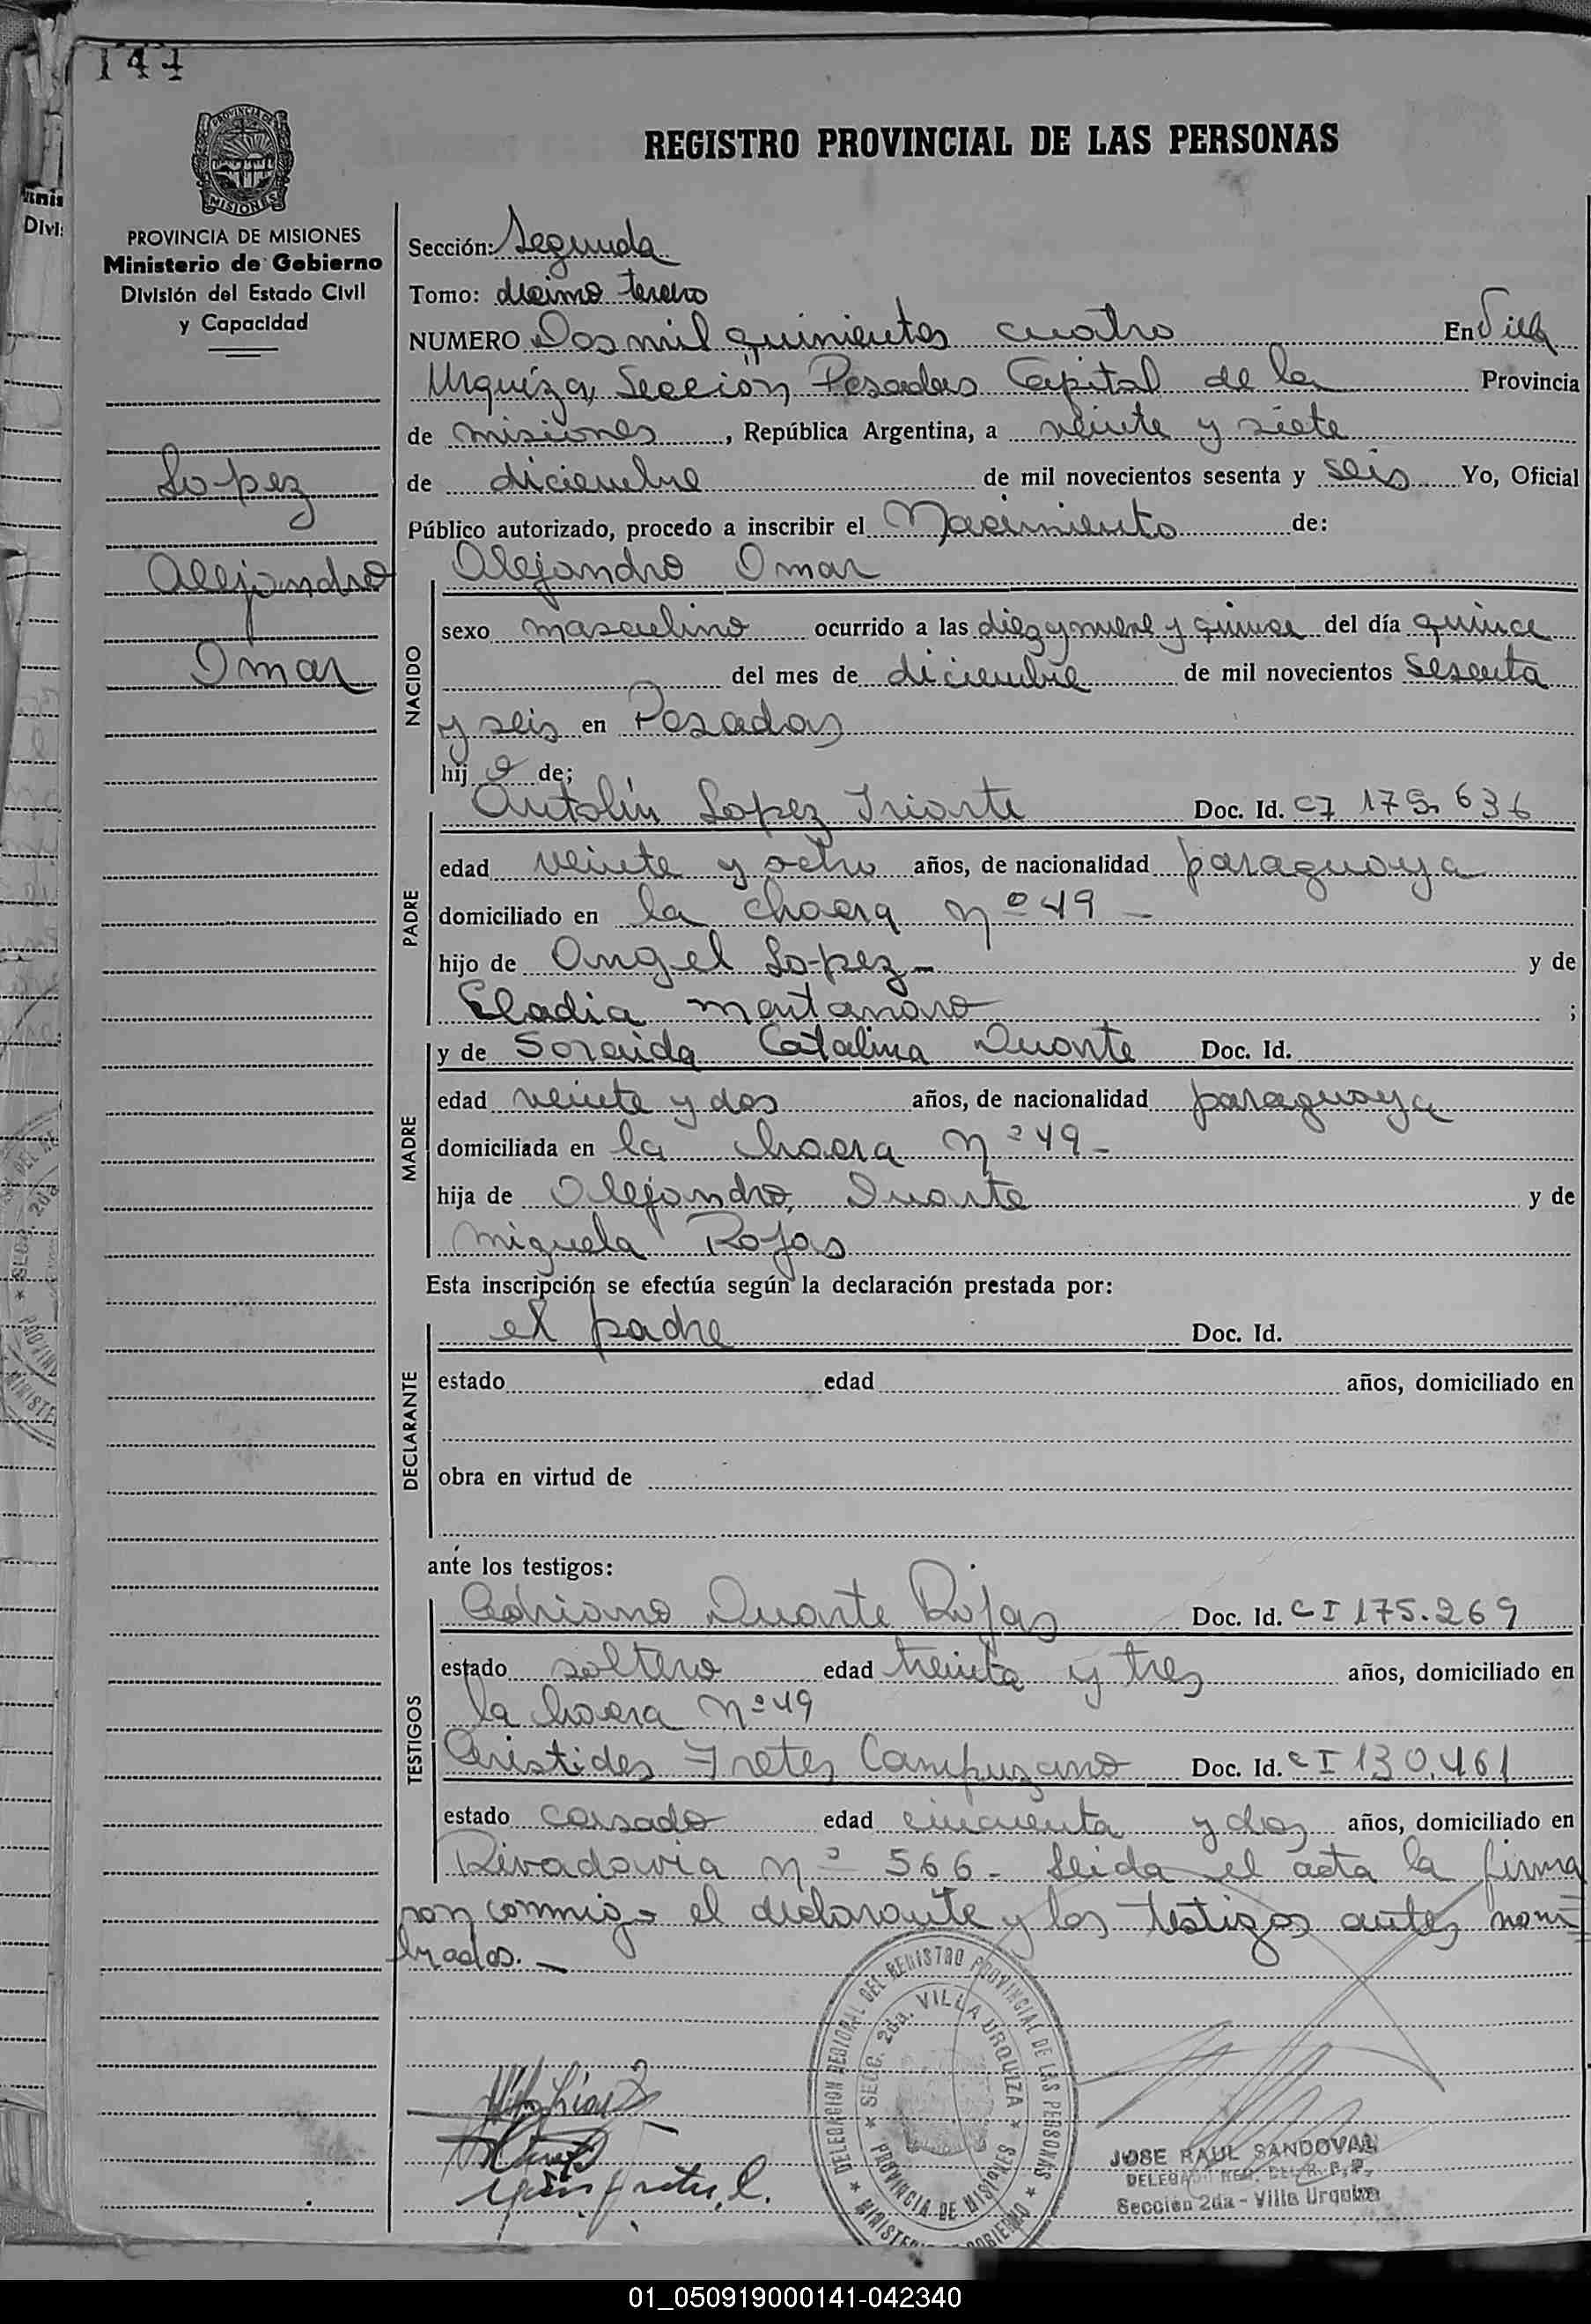 144
PROVINCIA DE MISIONES
MISIONES
PROVINCIA DE MISIONES
Ministerio de Gobierno
División del Estado Civil
y Capacidad
Lopez
Alejandro
Omar
REGISTRO PROVINCIAL DE LAS PERSONAS
Sección: Segunda
Tomo: decimo tercero
NUMERO Dos mil quinientos cuatro En Villa
Urquiza, Sección, Posadas Capital de la Provincia
de misiones, República Argentina, a veinte y siete
de diciembre de mil novecientos sesenta y seis Yo, Oficial
Público autorizado, procedo a inscribir el Nacimiento de:
NACIDO
Alejandro Omar
sexo masculino ocurrido a las diez y nueve y quince del día quince
del mes de diciembre de mil novecientos sesenta
y seis en Posadas
hij o de;
PADRE
Antolín Lopez Iriarte Doc. Id. CI 175.636
edad veinte y ocho años, de nacionalidad paraguaya
domiciliado en la chacra nº 49 -
hijo de Angel Lopez - y de
Eladia montanaro ;
MADRE
y de Soraida Catalina Duarte Doc. Id.
edad veinte y dos años, de nacionalidad paraguaya
domiciliada en la chacra nº 49 -
hija de Alejandro Duarte y de
Miguela Rojas
Esta inscripción se efectúa según la declaración prestada por:
DECLARANTE
el padre Doc. Id.
estado edad años, domiciliado en
obra en virtud de
ante los testigos:
TESTIGOS
Adriano Duarte Rojas Doc. Id. CI 175.269
estado soltero edad treinta y tres años, domiciliado en
la chacra nº 49
Aristides Fretes Campuzano Doc. Id. CI 130.461
estado casado edad cincuenta y dos años, domiciliado en
Rivadavia nº 566 - Leida el acta la firma
ron conmigo el declarante y los testigos antes nom
brados. -
DELEGACION REGIONAL DEL REGISTRO PROVINCIAL DE LAS PERSONAS
SECC. 2da. VILLA URQUIZA
PROVINCIA DE MISIONES
JOSE RAUL SANDOVAL
Sección 2da - Villa Urquiza
01_050919000141-042340